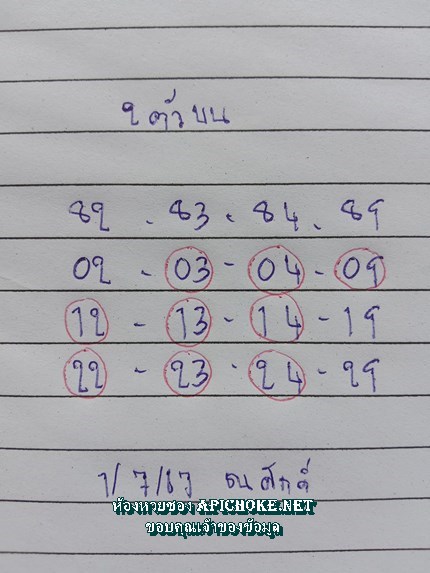 2 ตัวบน
82 - 83 - 84 - 89
02 - 03 - 04 - 09
12 - 13 - 14 - 19
22 - 23 - 24 - 29
1/7/67
ห้องหวยซอง APICHOKE.NET
ขอบคุณเจ้าของข้อมูล